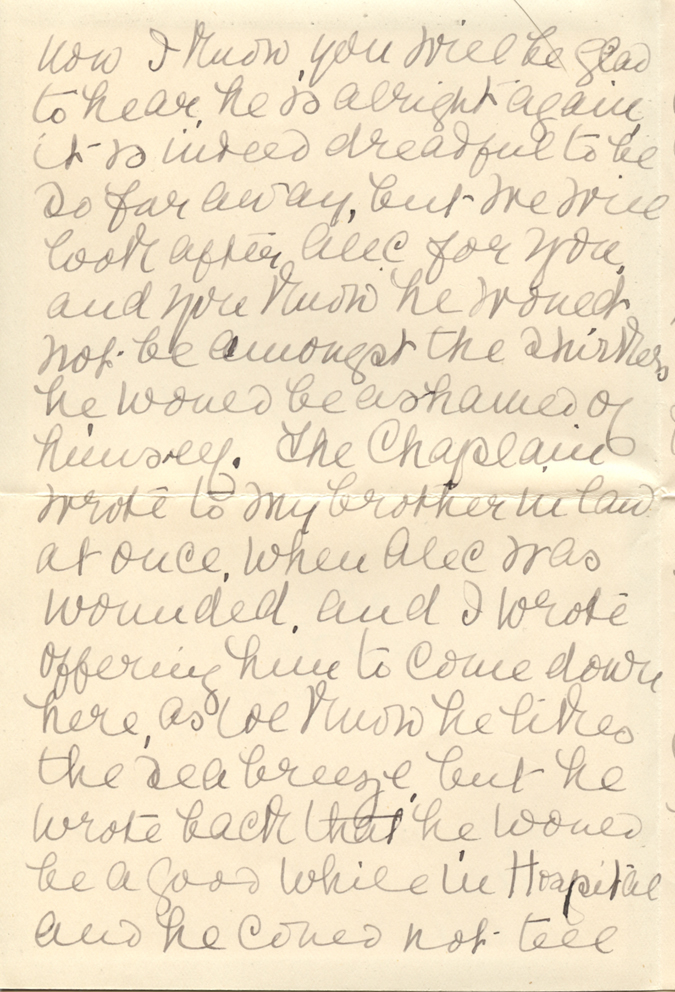 now I know, you will be glad
to hear, he is alright again,
it is indeed dreadful to be
so far away, but we will
look after Alec for you,
and you know he would
not be amongst the shirkers
he would be ashamed of
himself. The Chaplain
wrote to my brother in law
at once, when Alec was
wounded, and I wrote
offering him to come down
here, as we know he likes
the sea breeze, but he
wrote back that he would
be a good while in Hospital
and he could not tell